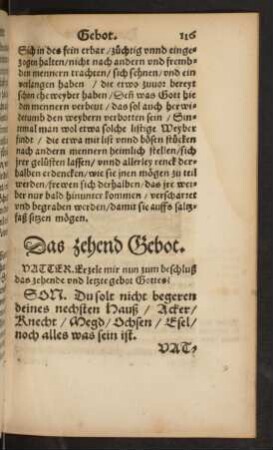 Gebot. 116
Sich in des fein erbar / züchtig vnnd einge-
zogen halten / nicht nach andern vnd fremb-
den mennern trachten / sich sehnen / vnd ein
verlangen haben / die etwo zuuor bereyt
schon eheweyber haben / Denn was Gott hie
den mennern verbeut / das sol auch herwi-
derumb den weybern verbotten sein / Sin-
temal man wol etwa solche listige Weyber
findt / die etwa mit list vnnd bösen stücken
nach andern mennern heimlich stellen / sich
jrer gelüsten lassen / vnnd allerley renck der-
halben erdencken / wie sie jnen mögen zu teil
werden / frewen sich derhalben / das jre wei-
ber nur bald hinunter kommen / verscharret
vnd begraben werden / damit sie auffs saltz-
faß sitzen mögen.
Das zehend Gebot.
VATTER. Erzele mir nun zum beschluß
das zehende vnd letzte gebot Gottes?
SON. Du solt nicht begeren
deines nechsten Hauß / Acker /
Knecht / Megd / Ochsen / Esel /
noch alles was sein ist.
VAT-